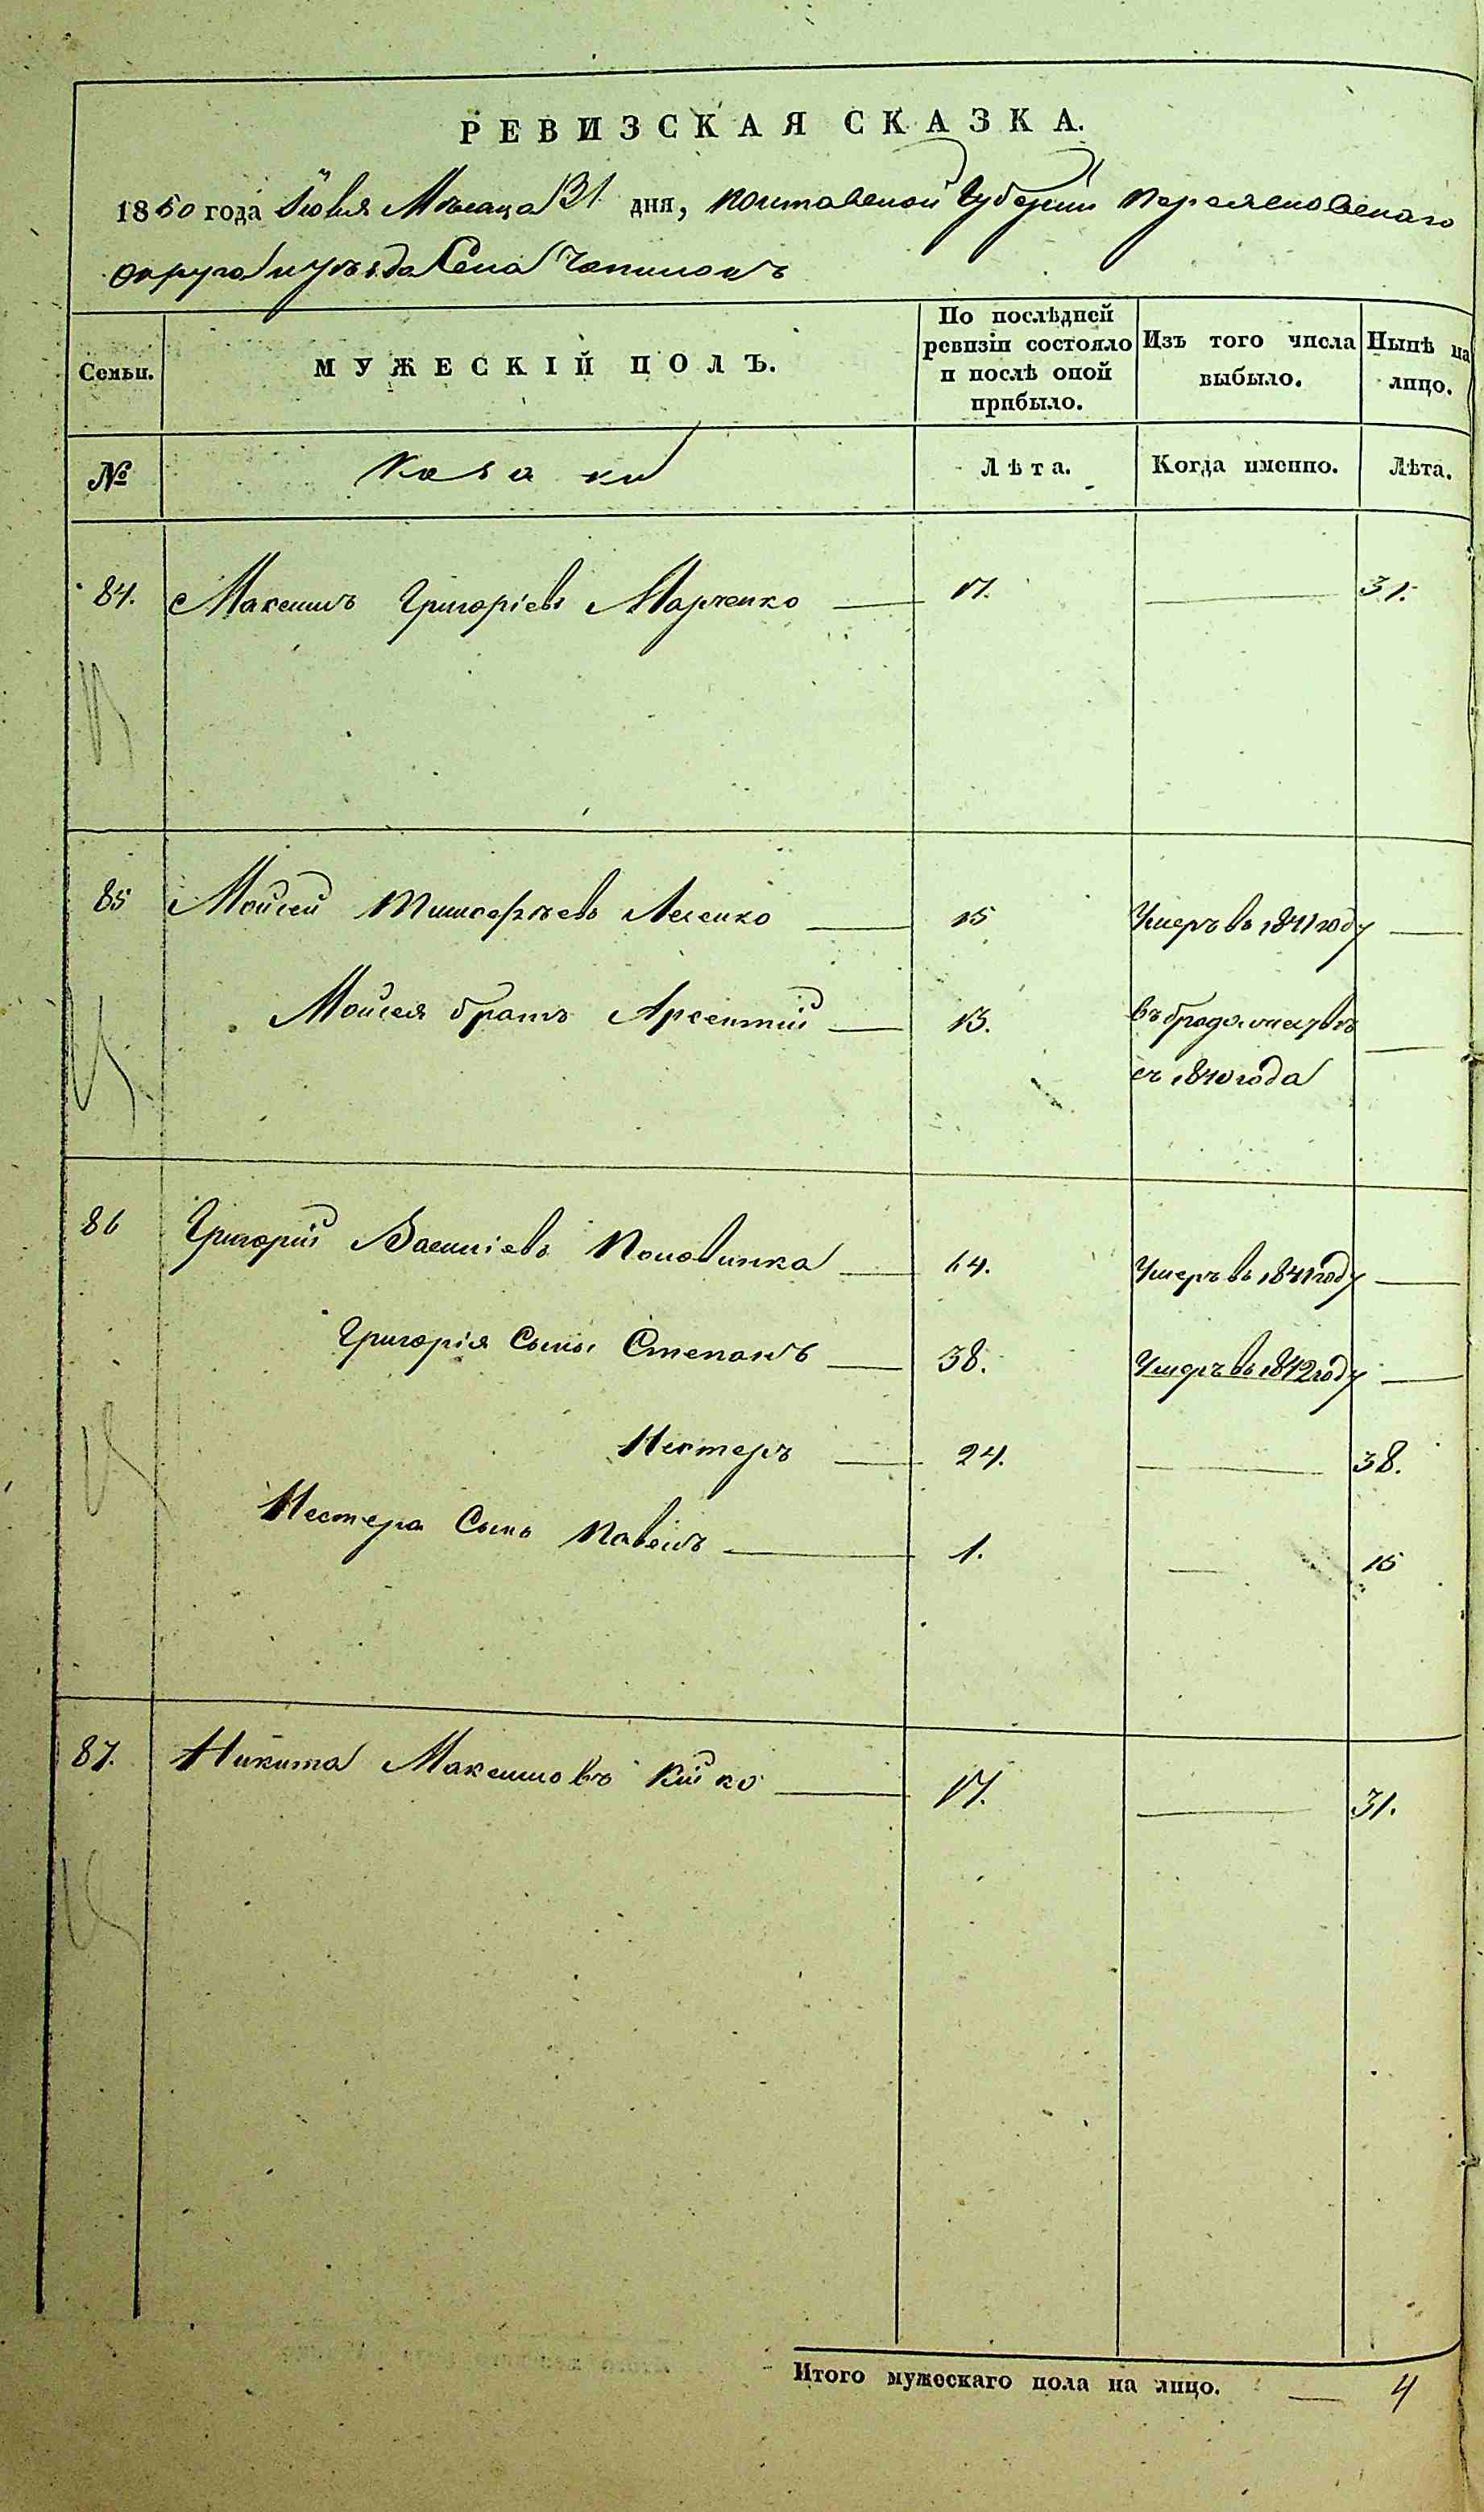 РЕВИЗСКАЯ СКАЗКА.
1850 года Іюля Мѣсяца 31 дня, Полтавской Губерніи Переяславскаго
округа и уѣзда Села Чопилокъ
Семьи.
МУЖЕСКІЙ ПОЛЪ.
По послѣдней ревизіи состояло и послѣ оной прибыло.
Изъ того числа выбыло.
Нынѣ на лицо.
№
Козаки
Лѣта.
Когда именно.
Лѣта.
84. Максимъ Григоріевъ Марченко 17. 31.
85 Мойсей Тимофѣевъ 15 Умеръ въ 1841 году
Мойсея братъ Арсентій 13. въ бродяжествѣ
съ 1840 года
86 Григорій Василіевъ Половинка 64. Умеръ въ 1841 году
Григорія Сыны Степанъ 38. Умеръ въ 1842 году
Нестеръ 24. 38.
Нестера Сынъ Павелъ 1. 15
87. Никита Максимовъ Кійко 17. 31.
Итого мужескаго пола на лицо. 4